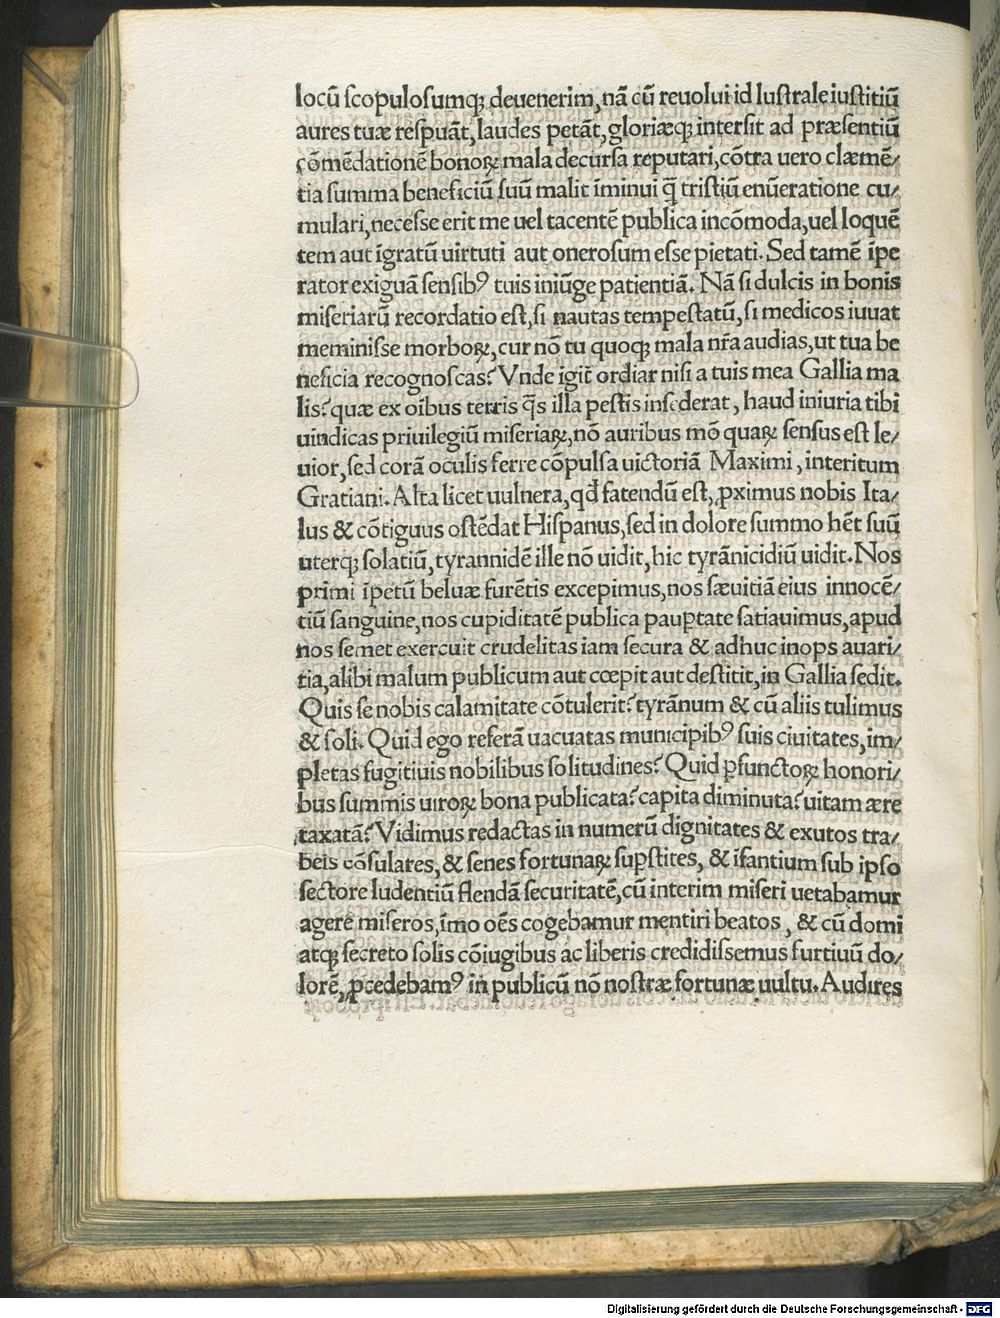 locū ſcopuloſumq; deuenerim,nā cū reuolui id luſtrale iuſtitiū
aures tuæ reſpuāt,laudes petāt,gloriæq; interſit ad præſentiū
cōmēdationē bonoꝝ mala decurſa reputari,cōtra uero clæmē⸗
tia ſumma beneficiū ſuū malit īminui q̄ triſtiū enūeratione cu⸗
mulari,neceſſe erit me uel tacentē publica incōmoda,uel loquē
tem aut īgratū uirtuti aut oneroſum eſſe pietati. Sed tamē īpe
rator exiguā ſenſibꝰ tuis iniūge patientiā. Nā ſi dulcis in bonis
miſeriarū recordatio eſt,ſi nautas tempeſtatū,ſi medicos iuuat
meminiſſe morboꝝ,cur nō tu quoq; mala nr̄a audias,ut tua be
neficia recognoſcas? Vnde igit̄ ordiar niſi a tuis mea Gallia ma
lis? quæ ex oībus terris q̄s illa peſtis inſederat, haud iniuria tibi
uindicas priuilegiū miſeriaꝝ,nō auribus mō quaꝝ ſenſus eſt le⸗
uior,ſed corā oculis ferre cōpulſa uictoriā Maximi, interitum
Gratiani. Alta licet uulnera,qd̄ fatendū eſt, ꝓximus nobis Ita⸗
lus & cōtiguus oſtēdat Hiſpanus,ſed in dolore ſummo hēt ſuū
uterq; ſolatiū,tyrannidē ille nō uidit,hic tyrānicidiū uidit. Nos
primi īpetū beluæ furētis excepimus,nos ſæuitiā eius innocē⸗
tiū ſanguine,nos cupiditatē publica paup̄tate ſatiauimus,apud
nos ſemet exercuit crudelitas iam ſecura & adhuc inops auari⸗
tia,alibi malum publicum aut cœpit aut deſtitit,in Gallia ſedit.
Quis ſe nobis calamitate cōtulerit? tyrānum & cū aliis tulimus
& ſoli. Quid ego referā uacuatas municipibꝰ ſuis ciuitates,im⸗
pletas fugitiuis nobilibus ſolitudines? Quid ꝑfunctoꝝ honori⸗
bus ſummis uiroꝝ bona publicata? capita diminuta? uitam ære
taxatā? Vidimus redactas in numerū dignitates & exutos tra⸗
beis cōſulares, & ſenes fortunaꝝ ſuꝑſtites, & īfantium ſub ipſo
ſectore ludentiū flendā ſecuritatē,cū interim miſeri uetabamur
agere miſeros,īmo oēs cogebamur mentiri beatos, & cū domi
atq; ſecreto ſolis cōiugibus ac liberis credidiſſemus furtiuū do⸗
lorē, ꝓcedebamꝰ in publicū nō noſtræ fortunæ uultu. Audires
Digitalisierung gefördert durch die Deutsche Forschungsgemeinschaft - DFG